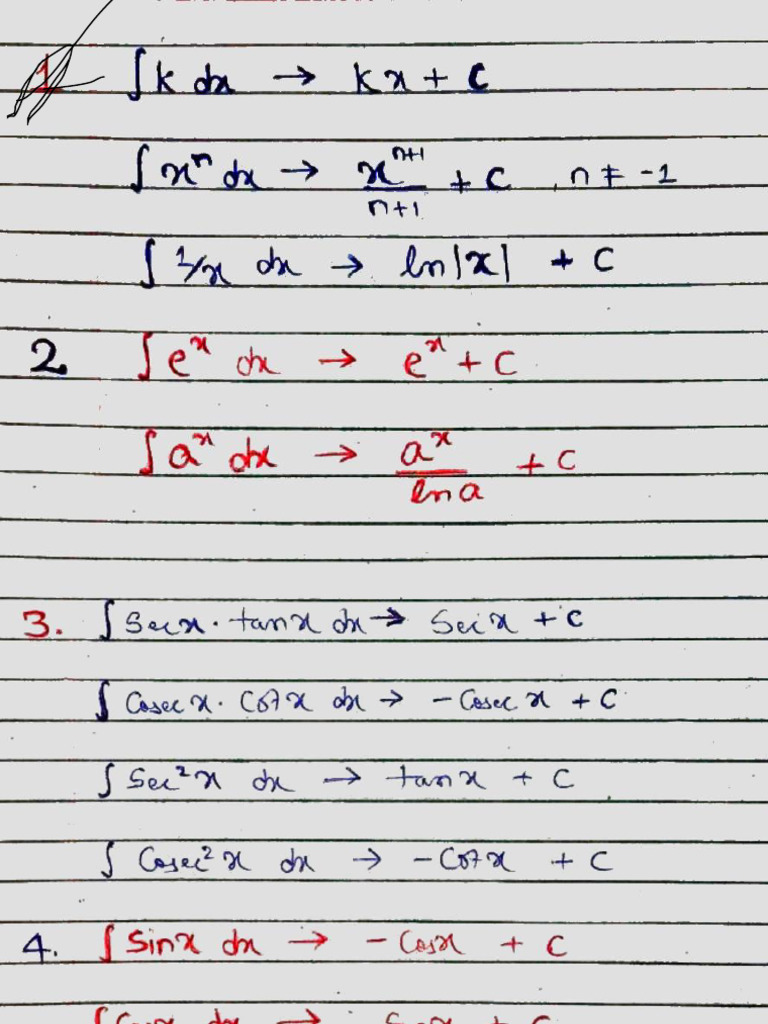 1 ∫k dx → kx + c
∫xⁿ dx → xⁿ⁺¹/n+1 + c , n ≠ -1
∫ 1/x dx → ln|x| + c
2 ∫eˣ dx → eˣ + c
∫aˣ dx → aˣ/ln a + c
3. ∫ Secx · tanx dx → Secx + c
∫ Cosec x · Cotx dx → - Cosec x + c
∫ Sec²x dx → tanx + c
∫ Cosec²x dx → - Cotx + c
4. ∫ Sinx dx → - Cosx + c